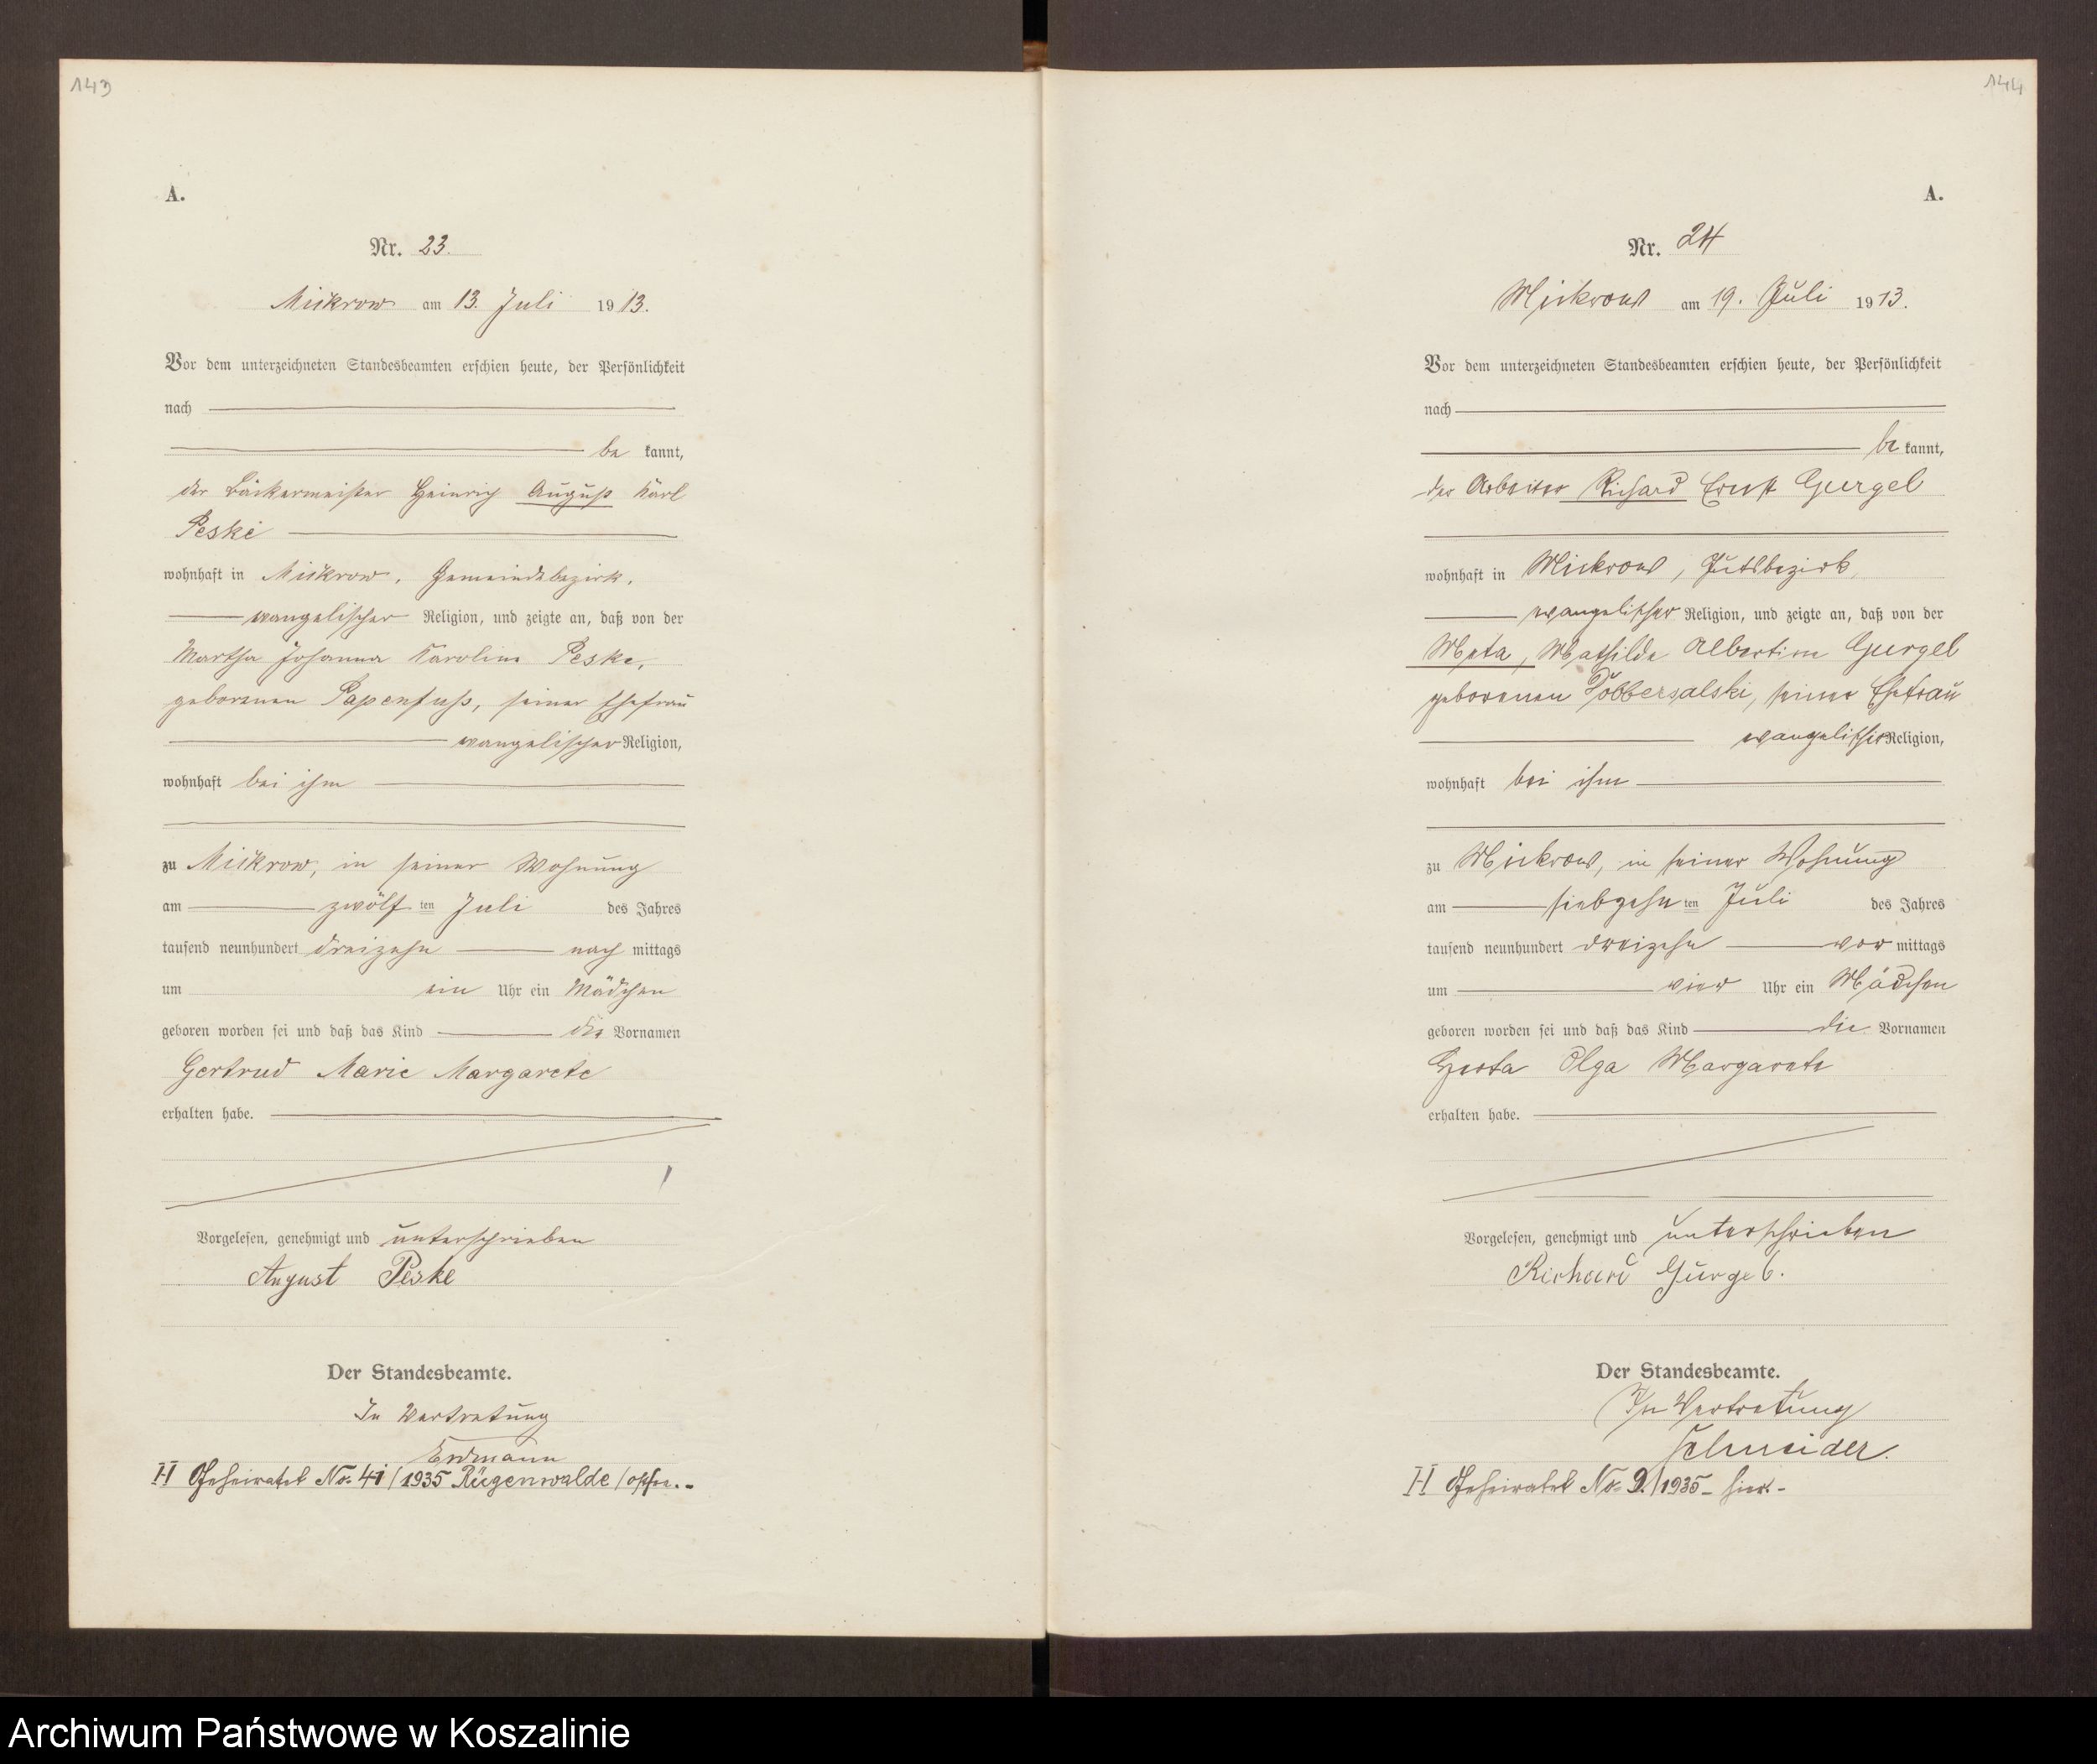 143
A.
Nr. 23.
Mickrow am 13. Juli 1913.
Vor dem unterzeichneten Standesbeamten erschien heute, der Persönlichkeit
nach
be kannt,
der Bäckermeister Heinrich August Karl
Peske
wohnhaft in Mickrow, Gemeindebezirk,
evangelischer Religion, und zeigte an, daß von der
Martha Johanna Karoline Peske,
geborenen Papenfuß, seiner Ehefrau
evangelischer Religion,
wohnhaft bei ihm
zu Mickrow, in seiner Wohnung
am zwölf ten Juli des Jahres
tausend neunhundert dreizehn nach mittags
um ein Uhr ein Mädchen
geboren worden sei und daß das Kind die Vornamen
Gertrud Marie Margarete
erhalten habe.
Vorgelesen, genehmigt und unterschrieben
August Peske
Der Standesbeamte.
In Vertretung
Erdmann
H Geheiratet No. 41/1935 Rügenwalde
144
A.
Nr. 24
Mickrow am 19. Juli 1913.
Vor dem unterzeichneten Standesbeamten erschien heute, der Persönlichkeit
nach
be kannt,
der Arbeiter Richard Ernst Gurgel
wohnhaft in Mickrow, Gutsbezirk,
evangelischer Religion, und zeigte an, daß von der
Meta, Mathilde Albertine Gurgel
geborenen seiner Ehefrau
evangelischer Religion,
wohnhaft bei ihm
zu Mickrow, in seiner Wohnung
am siebzehn ten Juli des Jahres
tausend neunhundert dreizehn vor mittags
um vier Uhr ein Mädchen
geboren worden sei und daß das Kind die Vornamen
Herta Olga Margarete
erhalten habe.
Vorgelesen, genehmigt und unterschrieben
Richard Gurgel.
Der Standesbeamte.
In Vertretung
Schneider.
H Geheiratet No. 9./1935 - hier. -
Archiwum Państwowe w Koszalinie